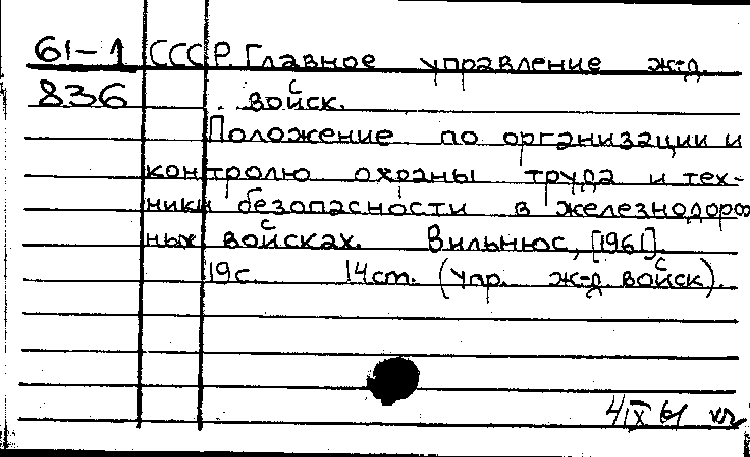 61-1 СССР. Главное управление ж-д.
836 войск.
Положение по организации и
контролю охраны труда и тех-
ники безопасности в железнодорож
ных войсках. Вильнюс, [1961].
19с 14см. (Упр. ж-д войск).
4/IX 61